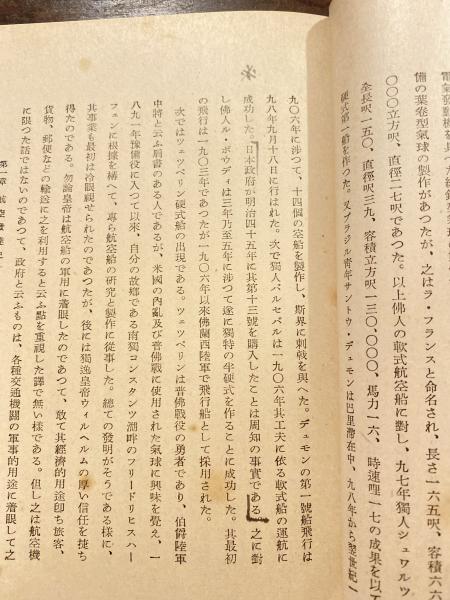 電氣發動機を具
備の葉卷型氣球の製作があつたが、之はラ・フランスと命名され、長さ一六五呎、容積六六
〇〇〇立方呎、直徑二七呎であつた。以上佛人の軟式航空船に對し、九七年獨人シュワルツ
全長呎一五〇、直徑呎三九、容積立方呎一三〇、〇〇〇、馬力一六、時速哩一七の成果を以て
硬式第一船を作つた。又ブラジル靑年サントウ・デュモンは巴里滯在中、九八年から翌世紀一
九〇六年に渉つて、十四個の空船を製作し、斯界に刺戟を與へた。デュモンの第一號船飛行は
九八年九月十八日に行はれた。次で獨人パルセバルは一九〇六年其工夫に依る軟式船の運航に
成功した。日本政府が明治四十五年に其第十三號を購入したことは周知の事實である。之に對
し佛人ル・ボウディは三年乃至五年に渉つて遂に獨特の半硬式を作ることに成功した。其最初
の飛行は一九〇三年であつたが一九〇六年以來佛蘭西陸軍で飛行船として採用された。
次ではツェツペリン硬式船の出現である。ツェツペリンは普佛戰役の勇者であり、伯爵陸軍
中將と云ふ肩書のある人であるが、米國の內亂及び普佛戰に使用された氣球に興味を覺え、一
八九一年豫備役に入つて以來、自分の故鄕である南獨コンスタンツ湖畔のフリードリヒスハー
フェンに根據を構へて、專ら航空船の研究と製作に從事した。總ての發明がそうである樣に、
其事業も最初は冷眼視せられたのであつたが、後には獨逸皇帝ウィルヘルムの厚い信任を捷ち
得たのである。勿論皇帝は航空船の軍用に着眼したのであつて、敢て其經濟的用途卽ち旅客、
貨物、郵便などの輸送に之を利用すると云ふ點を重視した譯で無い樣である。但し之は航空機
に限つた話ではないのであつて、政府と云ふものは、各種交通機關の軍事的用途に着眼して之
第一章 航空發達史